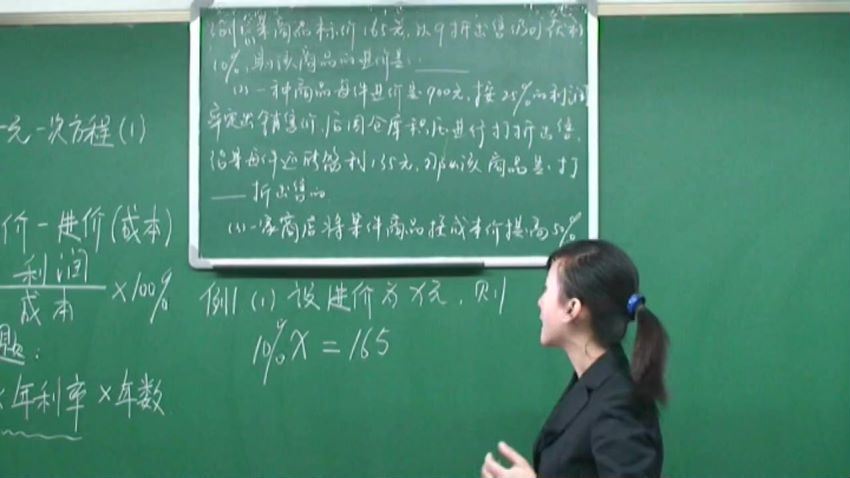 例1(1)某商品标价165元,以9折出售仍可获利
10%,则该商品的进价是:____
(2)一种商品每件进价是900元,按25%的利润
率定出销售价,后因仓库积压进行打折出售,
结果每件还能盈利135元,那么该商品是打
____折出售的
(3)一家商店将某件商品按成本价提高50%
一元一次方程(1)
价-进价(成本)
利润
成本
×100%
题:
×年利率×年数
例1(1)设进价为x元,则
10%x=165